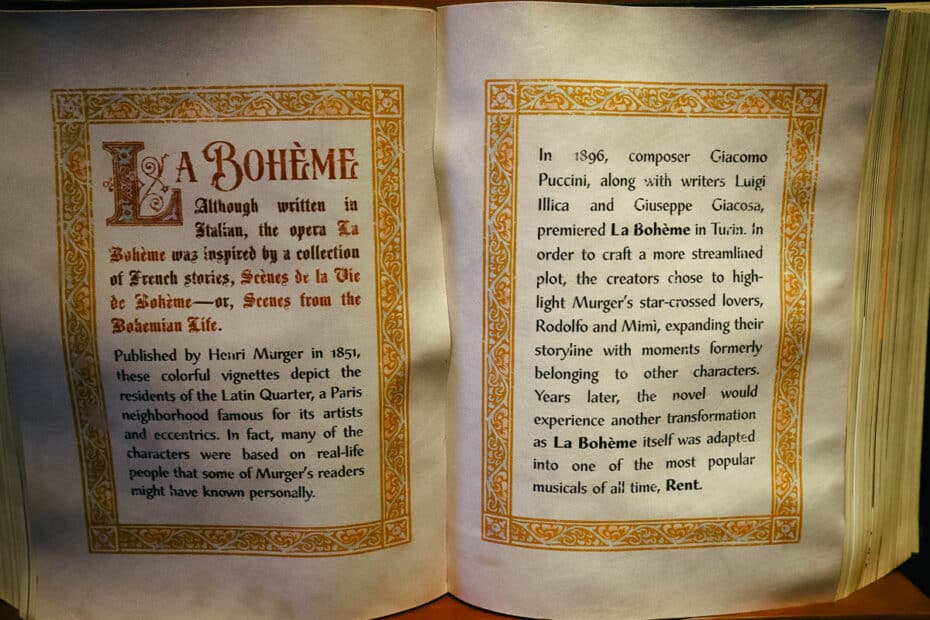 LA BOHÈME
Although written in
Italian, the opera La
Bohème was inspired by a collection
of French stories, Scènes de la Vie
de Bohème—or, Scenes from the
Bohemian Life.
Published by Henri Murger in 1851,
these colorful vignettes depict the
residents of the Latin Quarter, a Paris
neighborhood famous for its artists
and eccentrics. In fact, many of the
characters were based on real-life
people that some of Murger's readers
might have known personally.
In 1896, composer Giacomo
Puccini, along with writers Luigi
Illica and Giuseppe Giacosa,
premiered La Bohème in Turin. In
order to craft a more streamlined
plot, the creators chose to high-
light Murger's star-crossed lovers,
Rodolfo and Mimì, expanding their
storyline with moments formerly
belonging to other characters.
Years later, the novel would
experience another transformation
as La Bohème itself was adapted
into one of the most popular
musicals of all time, Rent.